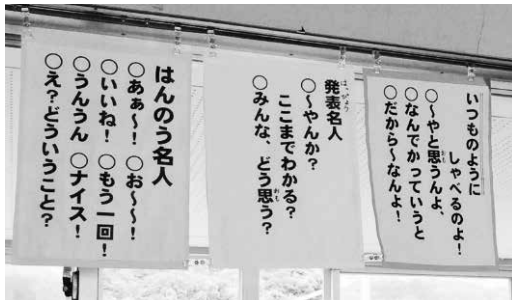 いつものように
しゃべるのよ!
○~やと思うんよ、
○なんでかっていうと
○だから~なんよ!
発表名人
○~やんか?
ここまでわかる?
○みんな、どう思う?
はんのう名人
○あぁ~! ○お~~!
○いいね! ○もう一回!
○うんうん ○ナイス!
○え?どういうこと?